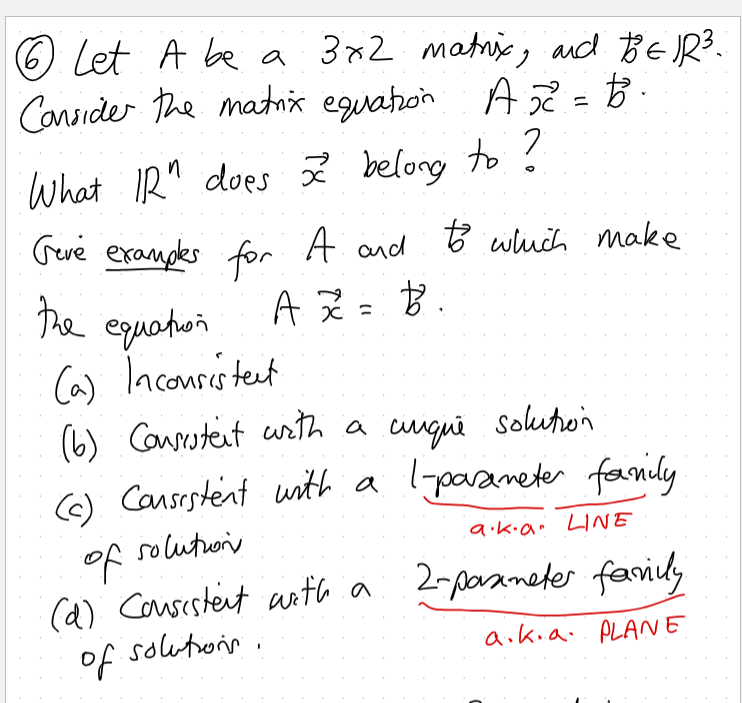 ⑥ Let A be a 3×2 matrix, and b⃗ ∈ ℝ³.
Consider the matrix equation A x⃗ = b⃗.
What ℝⁿ does x⃗ belong to ?
Give examples for A and b⃗ which make
the equation A x⃗ = b⃗.
(a) Inconsistent
(b) Consistent with a unique solution
(c) Consistent with a 1-parameter family
a.k.a. LINE
of solution
(d) Consistent with a 2-parameter family
a.k.a. PLANE
of solutions.